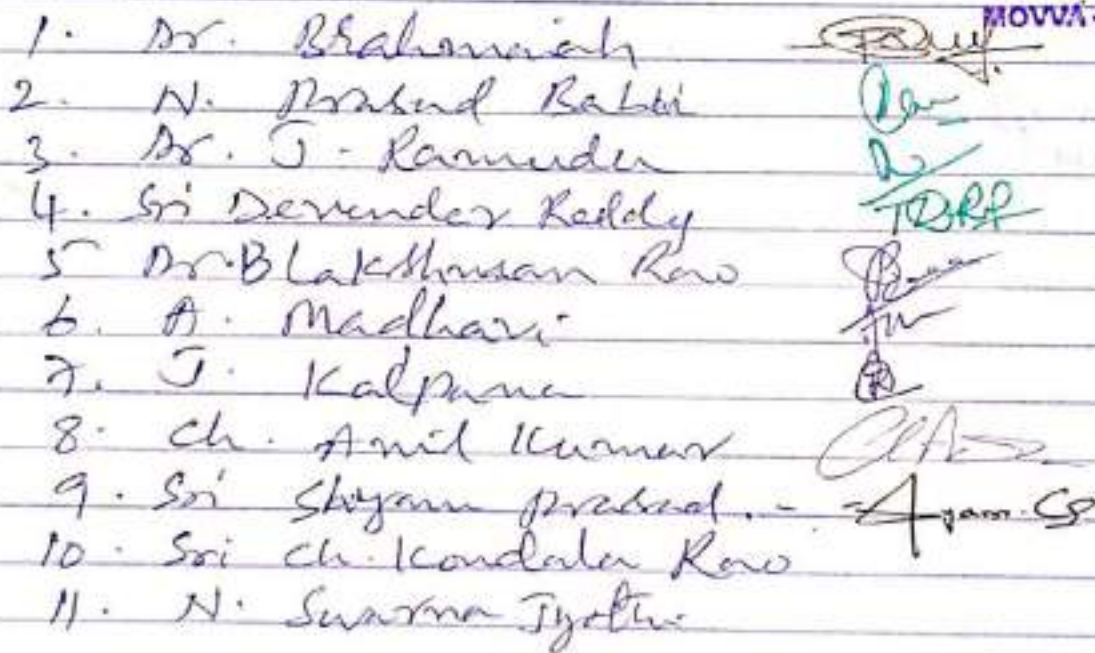 MOVVA
1. Dr. Brahmaiah
2. N. Prasad Babu
3. Dr. J. Ramudu
4. Sri Devender Reddy TDRP
5 Dr. B Lakshmman Rao
6. A. Madhavi
7. J. Kalpana
8. Ch. Anil Kumar
9. Sri Shyam prasad. -
10. Sri Ch. Kondala Rao
11. N. Swarna Jyothi